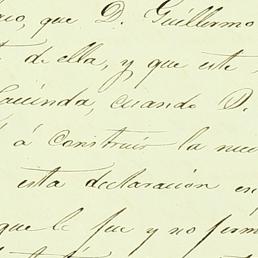 que D. Guillermo
de ella, y que este
cuando D.
á construir la nue
esta declaracion en
que le fue y no firm